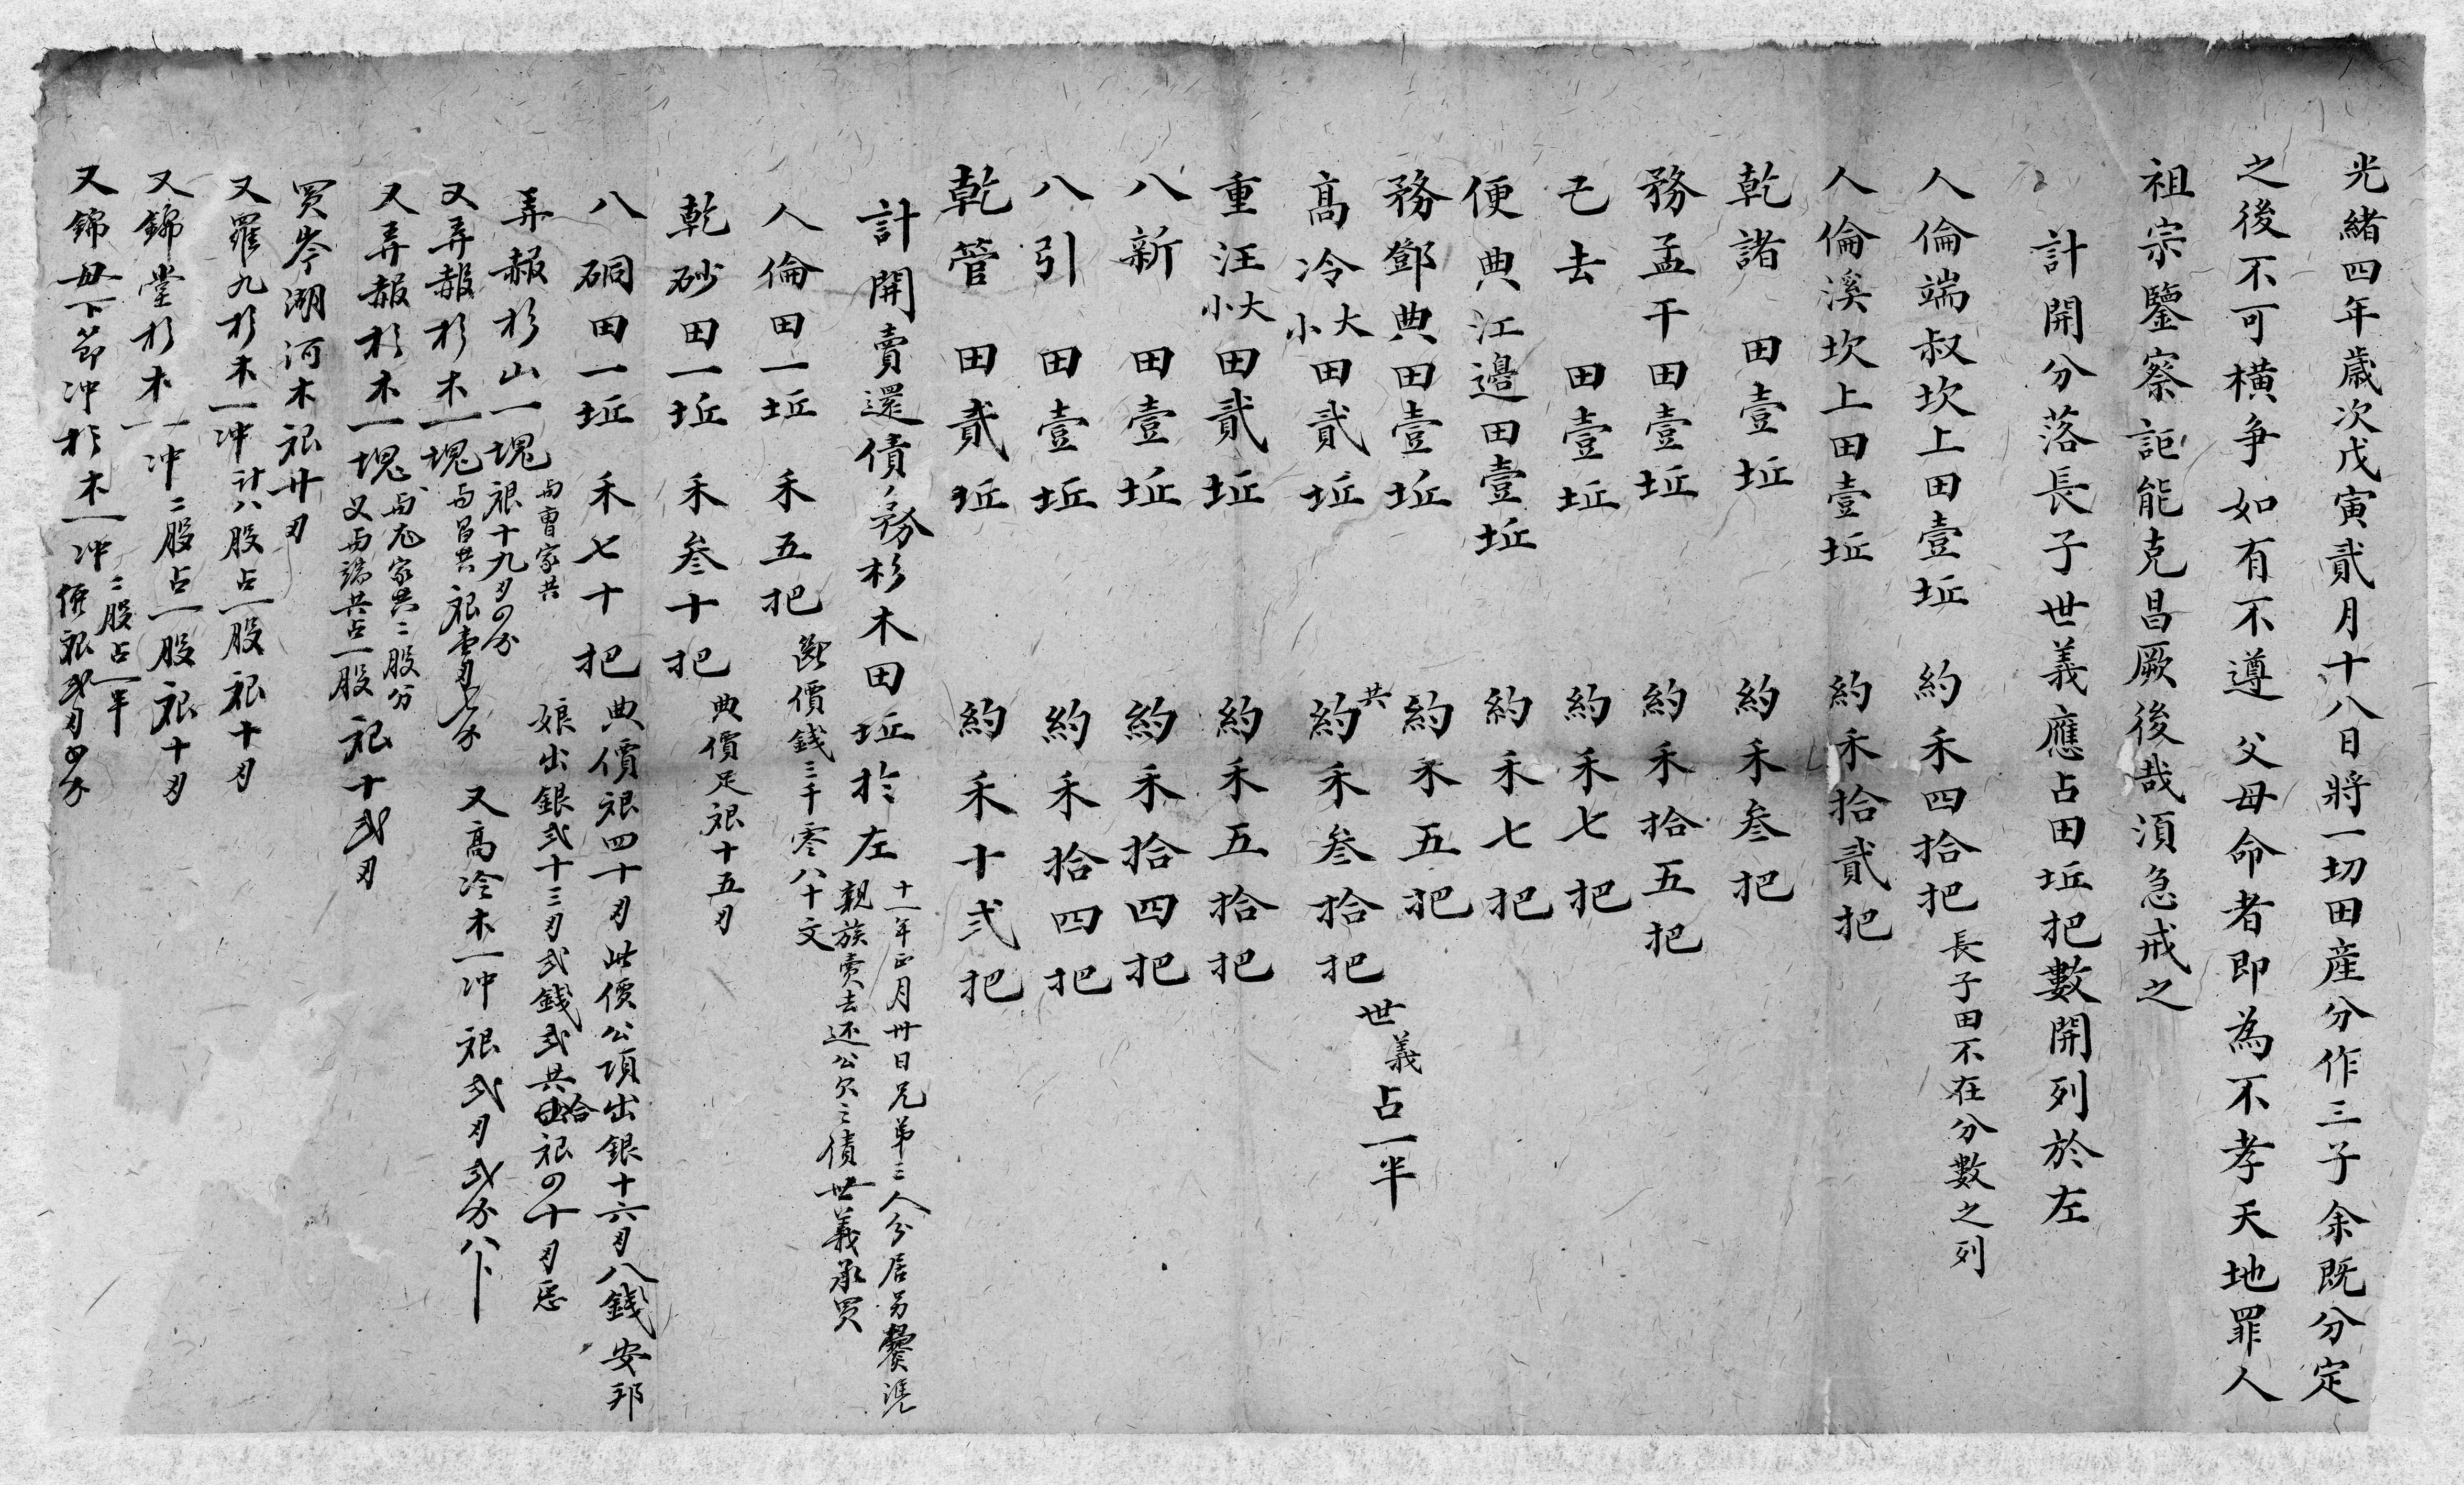 光緒四年歲次戊寅貳月十八日將一切田產分作三子余既分定
之後不可橫争如有不遵父母命者即為不孝天地罪人
祖宗鑒察詎能克昌厥後哉須急戒之
計開分落長子世義應占田坵把數開列於左
人倫端叔坎上田壹坵 約禾四拾把 長子田不在分數之列
人倫溪坎上田壹坵 約禾拾貳把
乾諸 田壹坵 約禾叁把
務孟干田壹坵 約禾拾五把
乞去 田壹坵 約禾七把
便典江邊田壹坵 約禾七把
務鄧典田壹坵 約禾五把
高冷大小田貳坵 共約禾叁拾把 世義占一半
重汪大小田貳坵 約禾五拾把
八新 田壹坵 約禾拾四把
八引 田壹坵 約禾拾四把
乾管 田貳坵 約禾十弐把
計開賣還債務杉木田坵於左
十一年正月卅日兄弟三人分居另爨憑
親族賣去还公欠之債世義承買
人倫田一坵 禾五把 斷價錢三千零八十文
乾砂田一坵 禾叁十把 典價足銀十五刃
八硐田一坵 禾七十把 典價銀四十刃此價公項出銀十六刃八錢安邦
娘出銀弐十三刃弐錢弐共拾銀四十刃
弄赧杉山一塊 与曹家共 銀十九刃四分
又弄赧杉木一塊 与昌共 銀壹刃七分
又高冷木一冲 銀弐刃弐分八卜
又弄赧杉木一塊 与尨家共二股分
又与端共占一股 銀十弐刃
買岑湖河木銀廿刃
又羅九杉木一冲 計八股占一股銀十刃
又錦堂杉木一冲 二股占一股銀十刃
又錦毋下節冲杉木一冲 二股占一半
銀弐刃四分